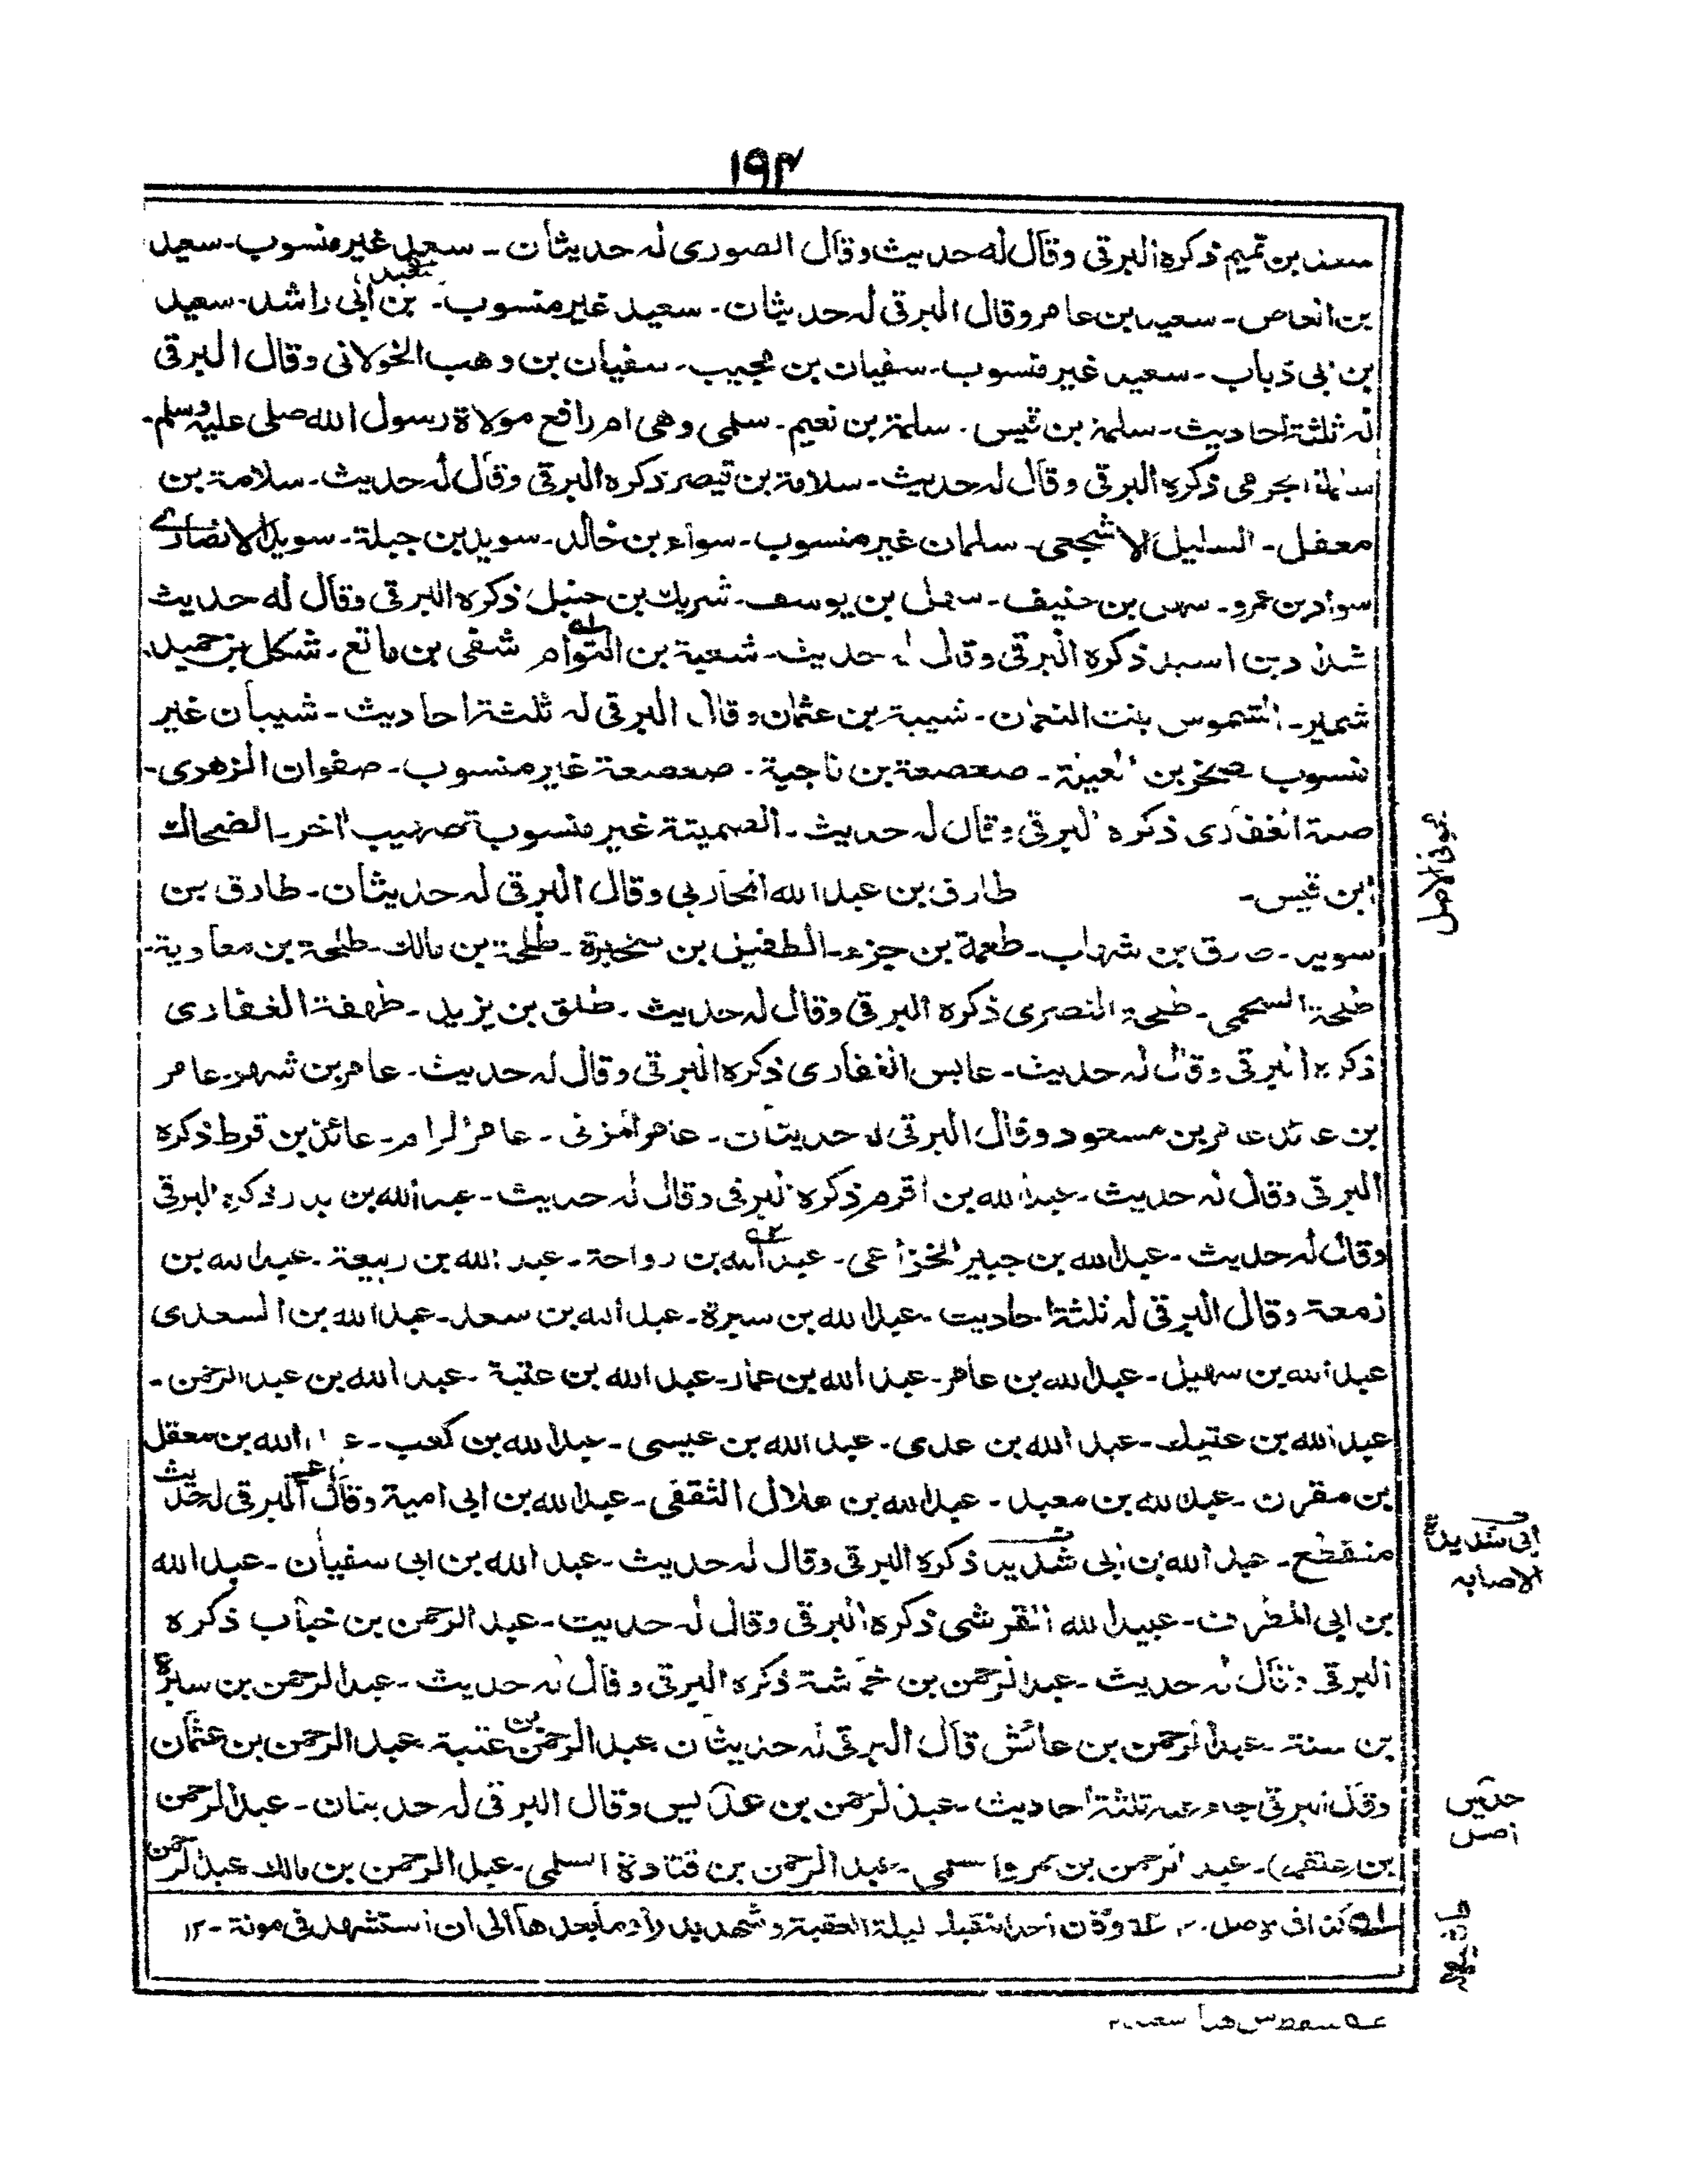 ۱۹۴
سعد بن تميم ذكره البرقى وقال له حديث وقال الصورى له حديثان - سعيد غير منسوب - سعيد
بن العاص - سعيد بن عامر وقال البرقى له حديثان - سعيد غير منسوب - بن ابى راشد - سعيد
بن ابى ذباب - سعيد غير منسوب - سفيان بن مجيب - سفيان بن وهب الخولانى وقال البرقى
له ثلثة احاديث - سلمة بن قيس - سلمة بن نعيم - سلمى وهى ام رافع مولاة رسول الله صلى عليه وسلم -
سلمة الجرمى ذكره البرقى وقال له حديث - سلامة بن قيصر ذكره البرقى وقال له حديث - سلامة بن
معقل - السليل الاشجعى - سلمان غير منسوب - سواء بن خالد - سويد بن جبلة - سويد الانصارى
سواد بن عمرو - سهل بن حنيف - سهل بن يوسف - شريك بن حنبل ذكره البرقى وقال له حديث
شداد بن اسيد ذكره البرقى وقال له حديث - شعبة بن التوام شفى بن ماتع - شكل بن حميد
شمير - الشموس بنت النعمان - شيبة بن عثمان وقال البرقى له ثلثة احاديث - شيبان غير
منسوب صخر بن العيلة - صعصعة بن ناجية - صعصعة غير منسوب - صفوان الزهرى -
صلة الغفارى ذكره البرقى وقال له حديث - الصميتة غير منسوبة صهيب اخر - الضحاك
ابن قيس - طارق بن عبد الله المحاربى وقال البرقى له حديثان - طارق بن
سويد - طارق بن شهاب - طعمة بن جزء - الطفيل بن سخبرة - طلحة بن مالك - طلحة بن معاوية -
طلحة السحيمى - طلحة النصرى ذكره البرقى وقال له حديث - طلق بن يزيد - طهفة الغفارى
ذكره البرقى وقال له حديث - عابس الغفارى ذكره البرقى وقال له حديث - عامر بن شهر - عامر
بن عائذ عامر بن مسعود وقال البرقى له حديثان - عامر المزنى - عامر الرام - عائذ بن قرط ذكره
البرقى وقال له حديث - عبد الله بن اقرم ذكره البرقى وقال له حديث - عبد الله بن بدر ذكره البرقى
وقال له حديث - عبد الله بن جبير الخزاعى - عبد الله بن رواحة - عبد الله بن ربيعة - عبد الله بن
زمعة وقال البرقى له ثلثة احاديث - عبد الله بن سبرة - عبد الله بن سعد - عبد الله بن السعدى
عبد الله بن سهيل - عبد الله بن عامر - عبد الله بن عمار - عبد الله بن عتبة - عبد الله بن عبد الرحمن -
عبد الله بن عتيك - عبد الله بن عدى - عبد الله بن عيسى - عبد الله بن كعب - عبد الله بن معقل
بن مقرن - عبد الله بن معبد - عبد الله بن هلال الثقفى - عبد الله بن ابى امية وقال البرقى له حديث
منقطع - عبد الله بن ابى شديد ذكره البرقى وقال له حديث - عبد الله بن ابى سفيان - عبد الله
بن ابى المطرف - عبيد الله القرشى ذكره البرقى وقال له حديث - عبد الرحمن بن خباب ذكره
البرقى وقال له حديث - عبد الرحمن بن خماشة ذكره البرقى وقال له حديث - عبد الرحمن بن سبرة
بن سنة - عبد الرحمن بن عائش قال البرقى له حديثان عبد الرحمن بن عتبة عبد الرحمن بن عثمان
وقال البرقى جاء عنه ثلثة احاديث - عبد الرحمن بن عديس وقال البرقى له حديثان - عبد الرحمن
بن (علقمه) - عبد الرحمن بن عمرو السلمى - عبد الرحمن بن قتادة السلمى - عبد الرحمن بن مالك عبد الرحمن
كذا فى الاصل ۱۲ وكان احد النقباء ليلة العقبة وشهد بدرا وما بعدها الى ان استشهد فى موتة - ۱۲
فى الاصل
ابى شديد
الاصابه
حديثين
اصل